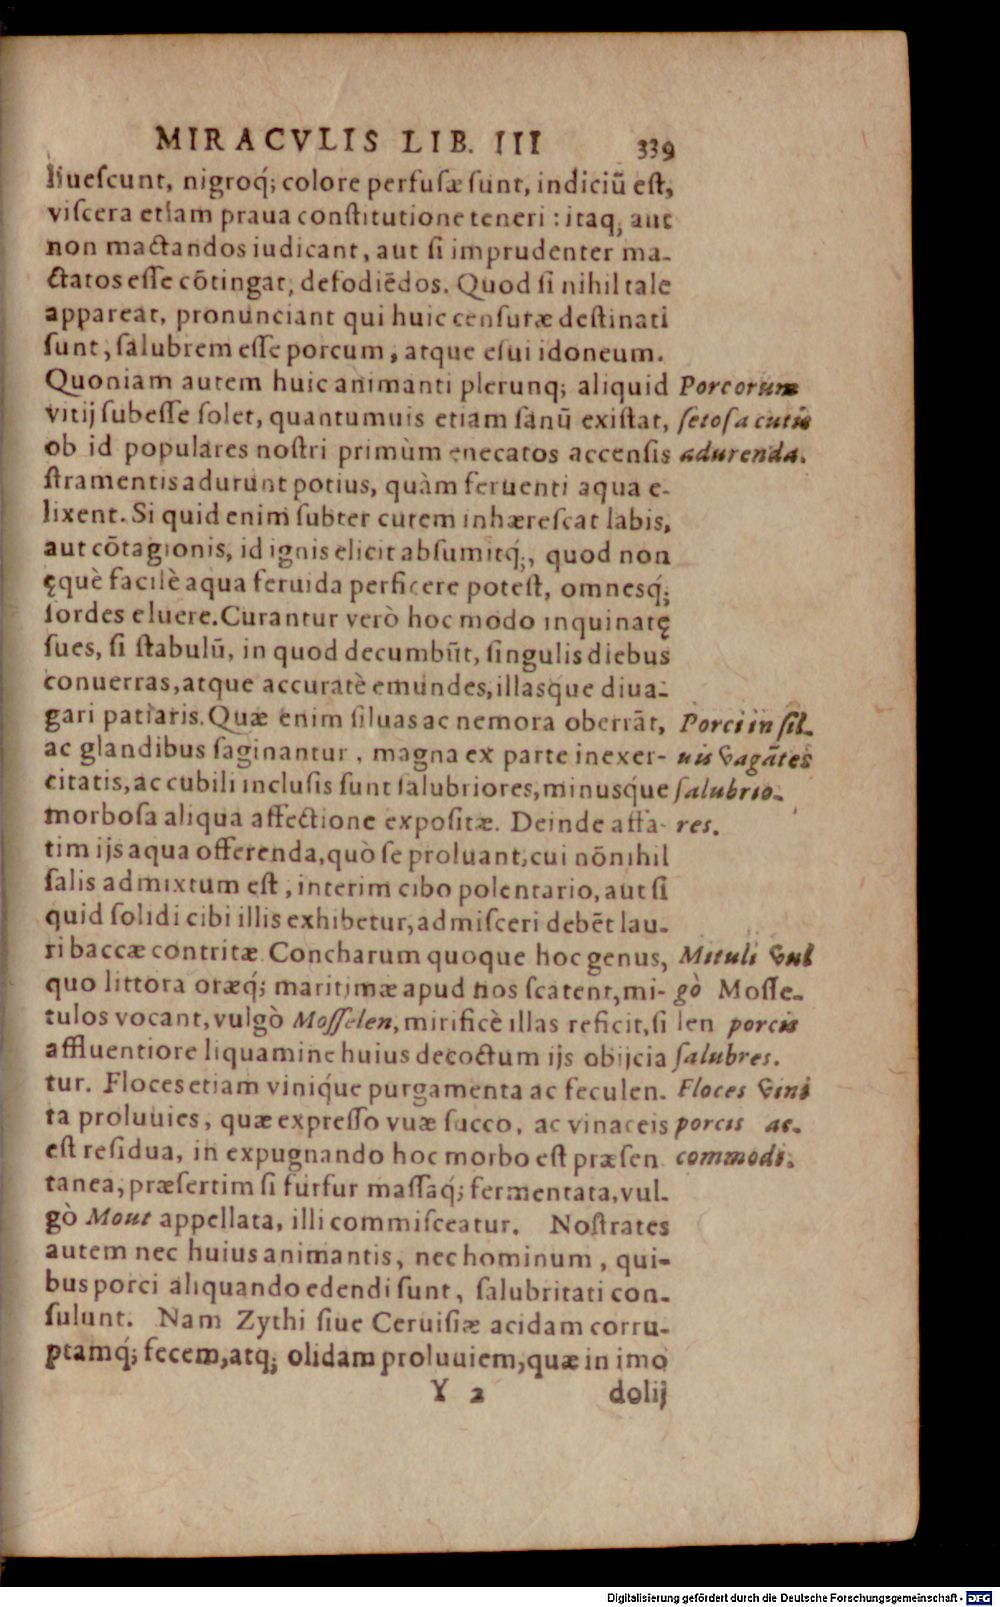 MIRACVLIS LIB. III 339
liuescunt, nigroq́; colore perfusæ sunt, indiciũ est,
viscera etiam praua constitutione teneri : itaq; aut
non mactandos iudicant, aut si imprudenter ma-
ctatos esse cõtingat, defodiẽdos. Quod si nihil tale
appareat, pronunciant qui huic censuræ destinati
sunt, salubrem esse porcum, atque esui idoneum.
Quoniam autem huic animanti plerunq; aliquid
vitij subesse solet, quantumuis etiam sanũ existat,
ob id populares nostri primùm enecatos accensis
stramentis adurunt potius, quàm feruenti aqua e-
lixent. Si quid enim subter cutem inhærescat labis,
aut cõtagionis, id ignis elicit absumitq́;, quod non
ęquè facilè aqua feruida perficere potest, omnesq́;
sordes eluere. Curantur verò hoc modo inquinatę
sues, si stabulũ, in quod decumbũt, singulis diebus
conuerras, atque accuratè emundes, illasque diua-
gari patiaris. Quæ enim siluas ac nemora oberrãt,
ac glandibus saginantur, magna ex parte inexer-
citatis, ac cubili inclusis sunt salubriores, minusq́ue
morbosa aliqua affectione expositæ. Deinde affa-
tim ijs aqua offerenda, quò se proluant, cui nõnihil
salis admixtum est, interim cibo polentario, aut si
quid solidi cibi illis exhibetur, admisceri debẽt lau-
ri baccæ contritæ. Concharum quoque hoc genus,
quo littora oræq́; maritimæ apud nos scatent, mi-
tulos vocant, vulgò Mosselen, mirificè illas reficit, si
affluentiore liquamine huius decoctum ijs obijcia
tur. Floces etiam viniq́ue purgamenta ac feculen-
ta proluuies, quæ expresso vuæ succo, ac vinaceis
est residua, in expugnando hoc morbo est præsen
tanea, præsertim si furfur massaq́; fermentata, vul-
gò Mout appellata, illi commisceatur. Nostrates
autem nec huius animantis, nec hominum, qui-
bus porci aliquando edendi sunt, salubritati con-
sulunt. Nam Zythi siue Ceruisiæ acidam corru-
ptamq́; fecem, atq; olidam proluuiem, quæ in imo
Y 2 dolij
Porcorum
setosa cutis
adurenda.
Porci in sil-
uis vagãtes
salubrio-
res.
Mituli vul
gò Mosse-
len porcis
salubres.
Floces vini
porcis ac-
commodi.
Digitalisierung gefördert durch die Deutsche Forschungsgemeinschaft - DFG